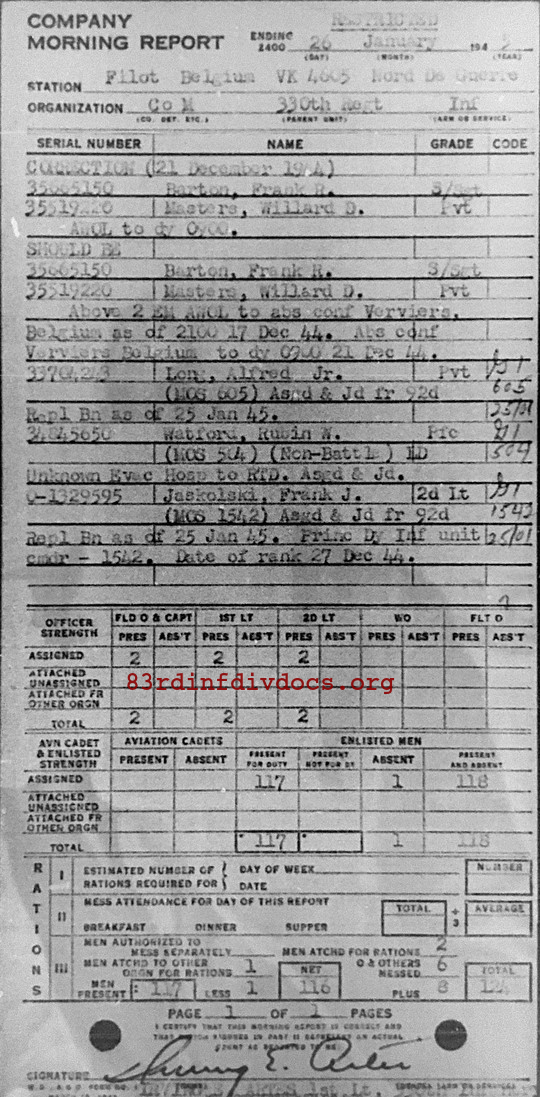 COMPANY
MORNING REPORT
RESTRICTED
ENDING 2400 26 January 194 5
(DAY) (MONTH) (YEAR)
STATION Filot Belgium VK 4605 Nord De Guerre
ORGANIZATION Co M 330th Regt Inf
(CO. DET. ETC.) (PARENT UNIT) (ARM OR SERVICE)
SERIAL NUMBER NAME GRADE CODE
CORRECTION (21 December 1944)
35665150 Barton, Frank R. S/Sgt
35519220 Masters, Willard D. Pvt
AWOL to dy 0900.
SHOULD BE
35665150 Barton, Frank R. S/Sgt
35519220 Masters, Willard D. Pvt
Above 2 EM AWOL to abs conf Verviers,
Belgium as of 2100 17 Dec 44. Abs conf
Verviers Belgium to dy 0900 21 Dec 44.
33704243 Long, Alfred Jr. Pvt
(MOS 605) Asgd & Jd fr 92d 605
Repl Bn as of 25 Jan 45. 25/01
34845650 Watford, Rubin W. Pfc
(MOS 504) (Non-Battle) LD 504
Unknown Evac Hosp to RTD. Asgd & Jd.
O-1329595 Jaskolski, Frank J. 2d Lt
(MOS 1542) Asgd & Jd fr 92d 1542
Repl Bn as of 25 Jan 45. Princ Dy Inf unit 25/01
cmdr - 1542. Date of rank 27 Dec 44.
OFFICER STRENGTH FLD O & CAPT 1ST LT 2D LT WO FLT O
PRES ABS'T PRES ABS'T PRES ABS'T PRES ABS'T PRES ABS'T
ASSIGNED 2 2 2
ATTACHED UNASSIGNED
83rdinfdivdocs.org
ATTACHED FR OTHER ORGN
TOTAL 2 2 2
AVN CADET & ENLISTED STRENGTH AVIATION CADETS ENLISTED MEN
PRESENT ABSENT PRESENT FOR DUTY PRESENT NOT FOR DY ABSENT PRESENT AND ABSENT
ASSIGNED 117 1 118
ATTACHED UNASSIGNED
ATTACHED FR OTHER ORGN
TOTAL 117 1 118
RATIONS
I ESTIMATED NUMBER OF RATIONS REQUIRED FOR DAY OF WEEK DATE NUMBER
II MESS ATTENDANCE FOR DAY OF THIS REPORT TOTAL ÷ 3 AVERAGE
BREAKFAST DINNER SUPPER
III MEN AUTHORIZED TO MESS SEPARATELY MEN ATCHD FOR RATIONS 2
MEN ATCHD TO OTHER ORGN FOR RATIONS 1 NET O & OTHERS MESSED 6 TOTAL
MEN PRESENT 117 LESS 1 116 PLUS 8 124
PAGE 1 OF 1 PAGES
I CERTIFY THAT THIS MORNING REPORT IS CORRECT AND
SIGNATURE
1st. Lt.,